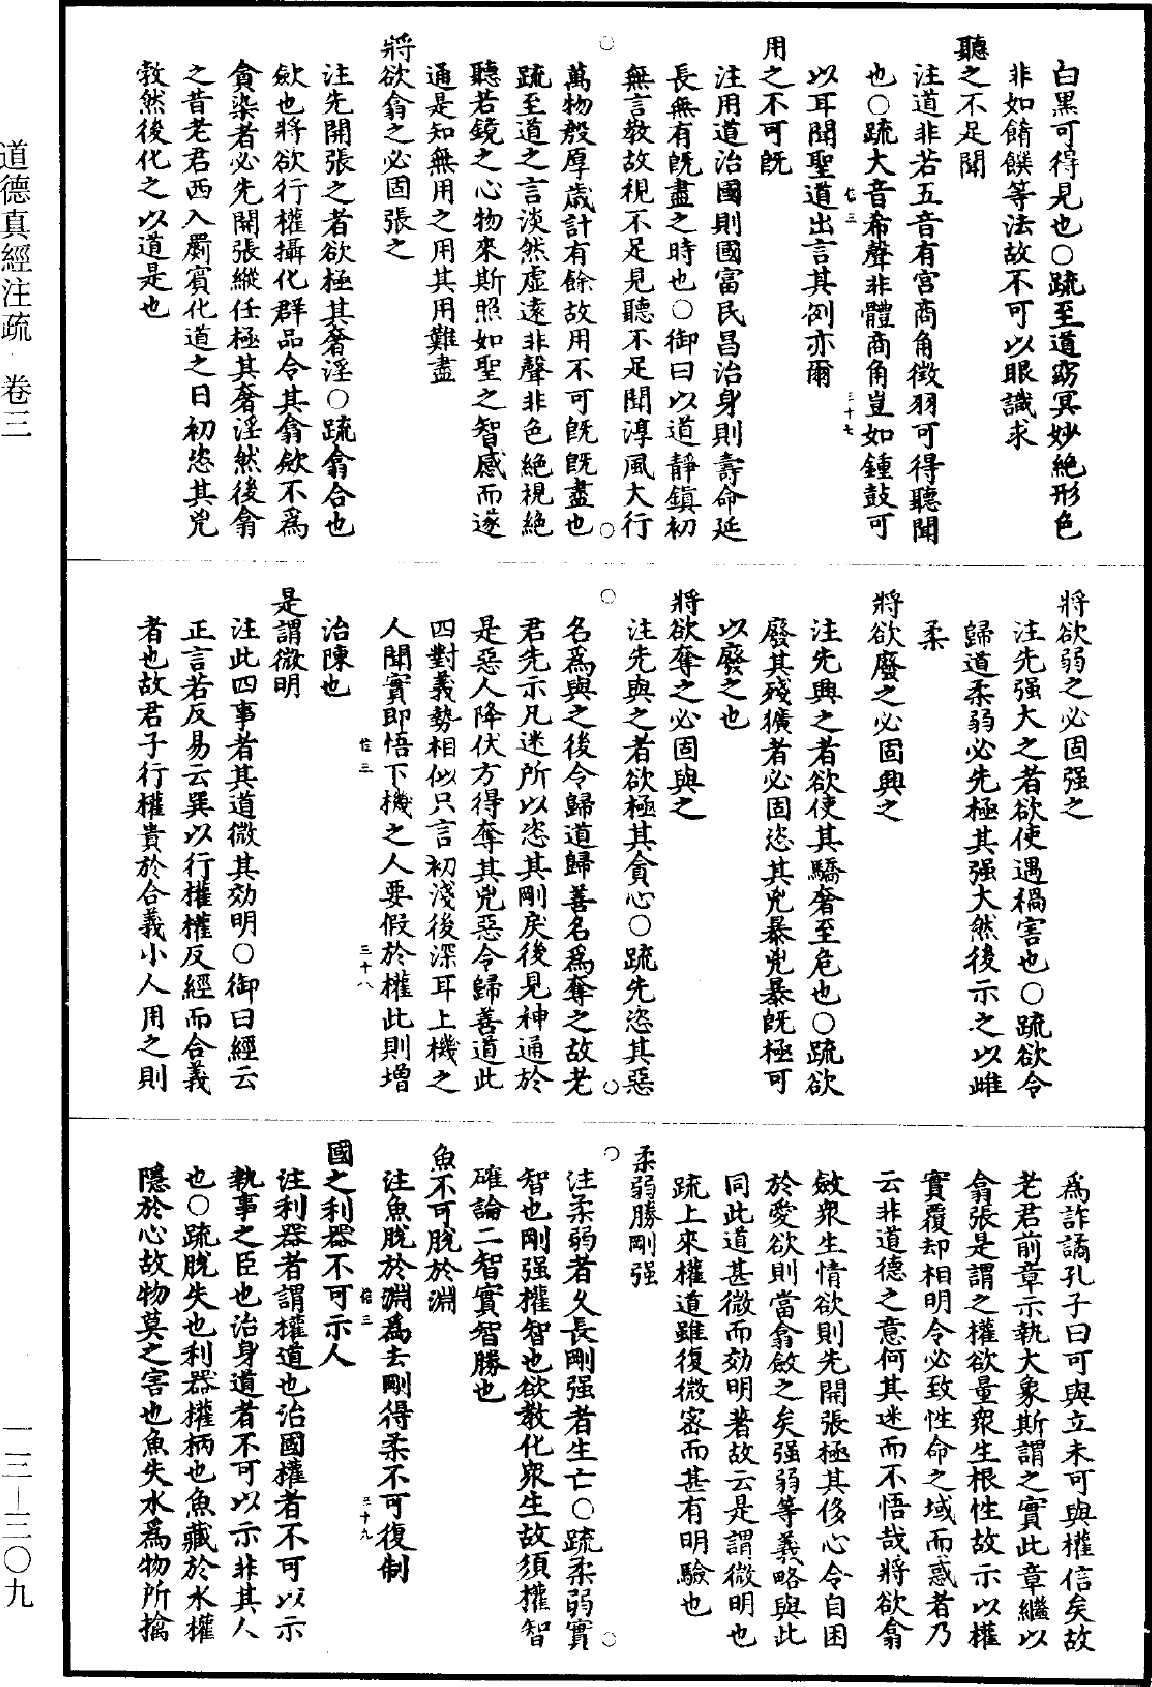 白黑可得見也○疏至道窈冥妙絕形色
非如餚饌等法故不可以眼識求
聽之不足聞
注道非若五音有宮商角徵羽可得聽聞
也○疏大音希聲非體商角豈如鍾鼓可
以耳聞聖道出言其例亦爾
用之不可旣
注用道治國則國富民昌治身則壽命延
長無有旣盡之時也○御曰以道靜鎮初
無言敎故視不足見聽不足聞淳風大行
萬物殷厚歲計有餘故用不可旣旣盡也
疏至道之言淡然虛遠非聲非色絕視絕
聽若鏡之心物來斯照如聖之智感而遂
通是知無用之用其用難盡
將欲翕之必固張之
注先開張之者欲極其奢淫○疏翕合也
歛也將欲行權攝化群品令其翕歛不爲
貪染者必先開張縱任極其奢淫然後翕
之昔老君西入罽賓化道之日初恣其兇
敎然後化之以道是也
將欲弱之必固强之
注先强大之者欲使遇禍害也○疏欲令
歸道柔弱必先極其强大然後示之以雌
柔
將欲廢之必固興之
注先興之者欲使其驕奢至危也○疏欲
廢其殘獷者必固恣其兇暴兇暴旣極可
以廢之也
將欲奪之必固與之
注先與之者欲極其貪心○疏先恣其惡
名爲與之後令歸道歸善名爲奪之故老
君先示凡迷所以恣其剛戾後見神通於
是惡人降伏方得奪其兇惡令歸善道此
四對義勢相似只言初淺後深耳上機之
人聞實即悟下機之人要假於權此則增
治陳也
是謂微明
注此四事者其道微其効明○御曰經云
正言若反易云巽以行權權反經而合義
者也故君子行權貴於合義小人用之則
爲詐譎孔子曰可與立未可與權信矣故
老君前章示執大象斯謂之實此章繼以
翕張是謂之權欲量衆生根性故示以權
實覆却相明令必致性命之域而惑者乃
云非道德之意何其迷而不悟哉將欲翕
斂衆生情欲則先開張極其侈心令自困
於愛欲則當翕斂之矣强弱等義略與此
同此道甚微而効明著故云是謂微明也
疏上來權道雖復微密而甚有明驗也
柔弱勝剛强
注柔弱者久長剛强者生亡○疏柔弱實
智也剛强權智也欲敎化衆生故須權智
確論二智實智勝也
魚不可脫於淵
注魚脫於淵爲去剛得柔不可復制
國之利器不可示人
注利器者謂權道也治國權者不可以示
執事之臣也治身道者不可以示非其人
也○疏脫失也利器權柄也魚藏於水權
隱於心故物莫之害也魚失水爲物所擒
道德真經注疏 卷三
一三－三〇九
三十七
三十八
三十九